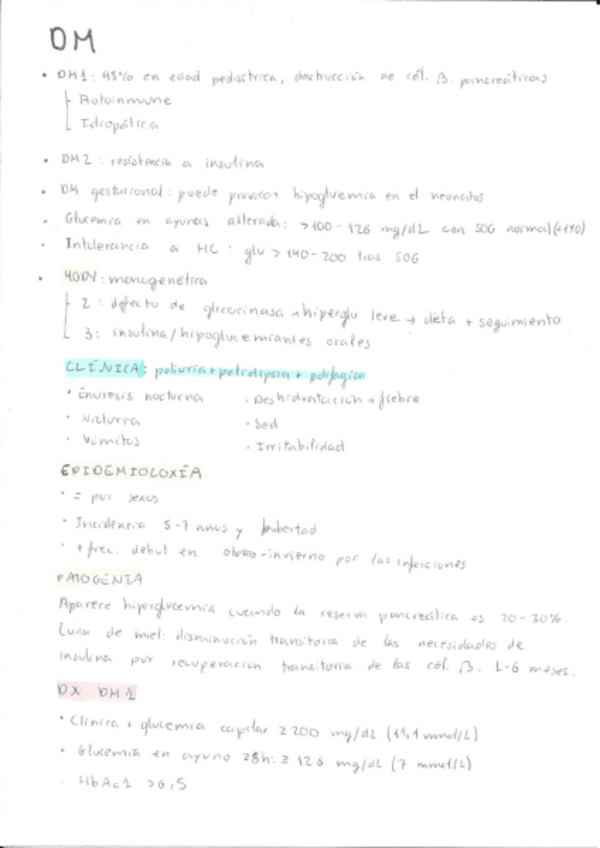 DM
• DM1: 95% en edad pediátrica, destrucción de cél. β. pancreáticas
Autoinmune
Idiopática
• DM2: resistencia a insulina
• DM gestacional: puede provocar hipoglucemia en el neonatos
• Glucemia en ayunas alterada: >100-126 mg/dL con SOG normal (<140)
• Intolerancia a HC: glu > 140-200 tras SOG
• MODY: monogenética
2: defecto de glucocinasa → hiperglu leve → dieta + seguimiento
3: insulina/hipoglucemiantes orales
CLÍNICA: poliuria + polidipsia + polifagia
• Enuresis nocturna • Deshidratación + fiebre
• Nicturia • Sed
• Vómitos • Irritabilidad
EPIDEMIOLOXÍA
• = por sexos
• Incidencia 5-7 años y pubertad
• + frec. debut en otoño-invierno por las infecciones
PATOGENIA
Aparece hiperglucemia cuando la reserva pancreática es 20-30%.
Luna de miel: disminución transitoria de las necesidades de
insulina por recuperación transitoria de las cél. β. 1-6 meses.
DX DM1
• Clínica + glucemia capilar ≥ 200 mg/dL (11,1 mmol/L)
• Glucemia en ayuno ≥8h: ≥ 126 mg/dL (7 mmol/L)
• HbAc1 >6,5